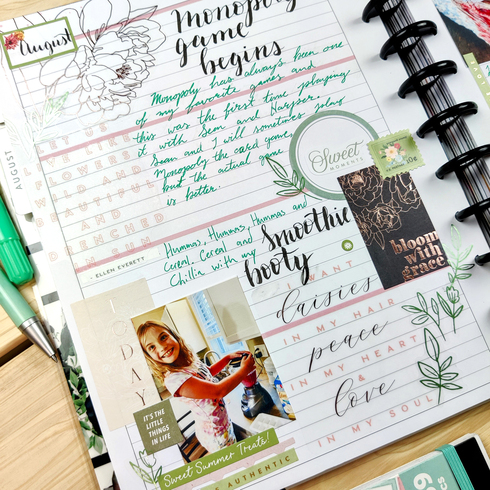 August
Monopoly
game
begins
Monopoly has always been one
of my favorite games and
this was the first time playing
it with Sean and Harper.
Sean and I will sometimes play
Monopoly the card game,
but the actual game
is better.
LET US
AND
DRENCHED
IN SUN
- ELLEN EVERETT
AUGUST
Sweet
MOMENTS
10¢
bloom
with
grace
Hummas, Hummas, Hummas and
Cereal, Cereal and
Chillin with my
smoothie
booty
I WANT
daisies
IN MY HAIR
peace
IN MY HEART
&
love
IN MY SOUL
TODAY
IT'S THE
LITTLE
THINGS
IN LIFE
Sweet Summer Treats!
AUTHENTIC